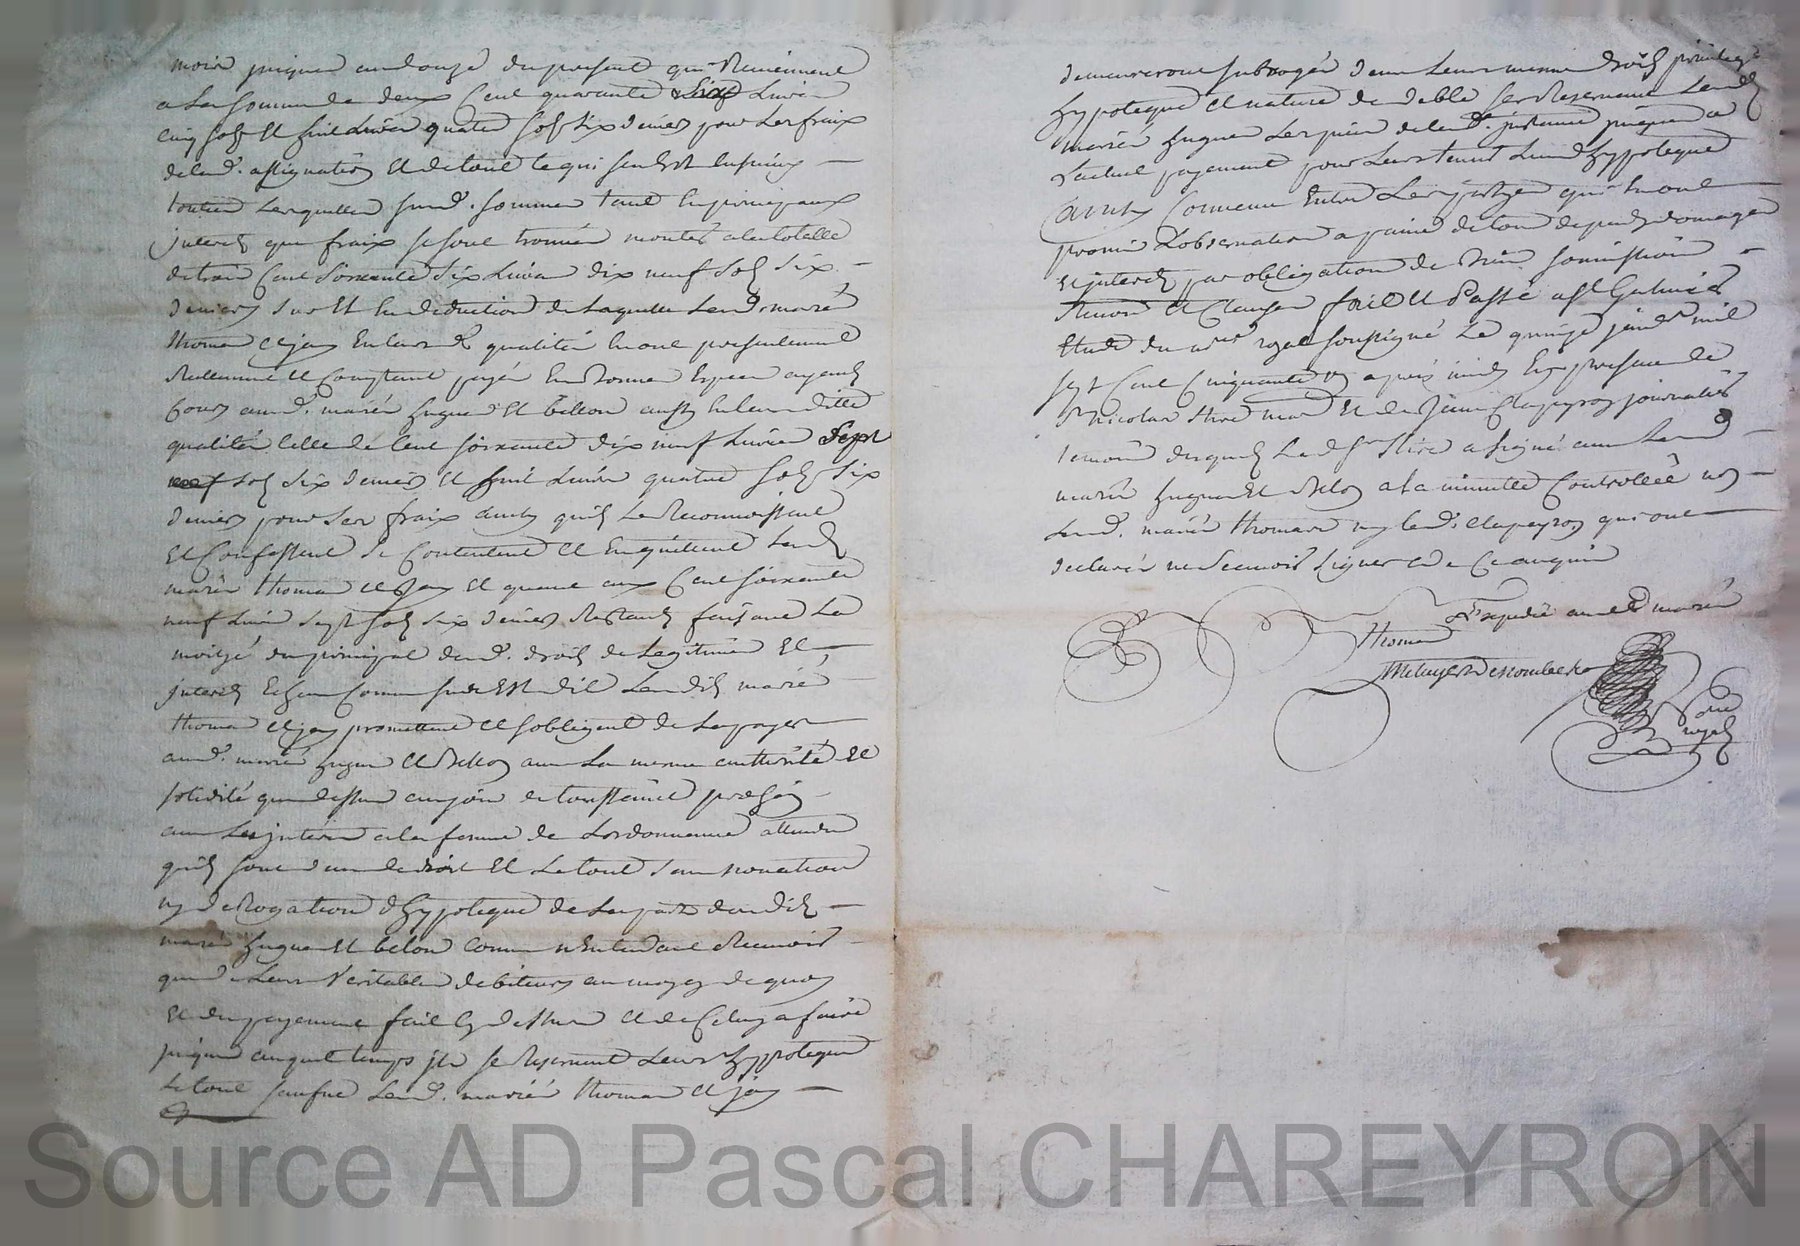 mois jusques au douze du present qui Reviennent
a la somme de deux Cent quarante Livres
cinq sols et huit Livres quatre sols six deniers pour les fraix
de lad. assignation et de tout ce qui sen est ensuivy
toutes lesquelles susd. sommes tant en principaux
interets que fraix se sont trouvées montés a la totalle
de trois Cent soixante six Livres dix neuf sols six
deniers sur et en deduction de laquelle lesd. mariés
thomas et jay en leurs d. qualités ont presentement
Reellement et Comptant payé en bonnes especes ayant
Cours auxd. mariés hugue et bellon aussy en leur ditte
qualités celle de Cent soixante dix neuf Livres sept
sols six deniers et huit Livres quatre sols six
deniers pour les fraix ainsy quils le Reconnoissent
et Confessent se Contentent et en quittent lesd.
mariés thomas et jay et quant aux Cent soixante
neuf Livres sept sols six deniers Restants faisant la
moitié du principal desd. droits de legitime et
interets echeus comme susd. est dit lesdits mariés
thomas et jay promettent et sobligent de les payer
auxd. mariés hugue et bellon avec la meme authorité et
solidité que dessus au jour de toussaint prochain
avec les interets a la forme de Lordonnance attendu
quils sont dans le droit et le tout sans novation
ny derogation dhypoteque de la part desdits
mariés hugue et belon comme nentendant Recevoir
que de leurs veritables debiteurs au moyen de quoy
et du payement fait cy dessus et de Celuy a faire
jusques auquel temps ils se Reservent leurs hypoteques
le tout sauf que lesd. mariés thomas et jay
demeureront subrogés dans leurs memes droits privileges
hypoteques et nature de debte se Reservant lesd.
mariés hugue les fraix de lad. instance jusques a
lactuel payement pour leur tenir lieu dhypoteque
ainsy Convenu entre les parties qui en ont
promis Lobservation a paine de tous depends domages
et interets par obligation de biens soumissions
Renon. et Clauses fait et Passé a St Galmier
etude du nore royal soussigné le quinze janvier mil
sept Cent Cinquante apres midy en presence de
Sr Nicolas mar et de Clapeyron journalier
temoins desquels led. Sr a signé avec lesd.
mariés hugue et bellon a la minutte Controllée non
lesd. mariés thomas ny led. Clapeyron qui ont
declarés ne sçavoir signer de ce enquis
Expedié auxd. mariés
thomas
nore
royal
Source AD Pascal CHAREYRON